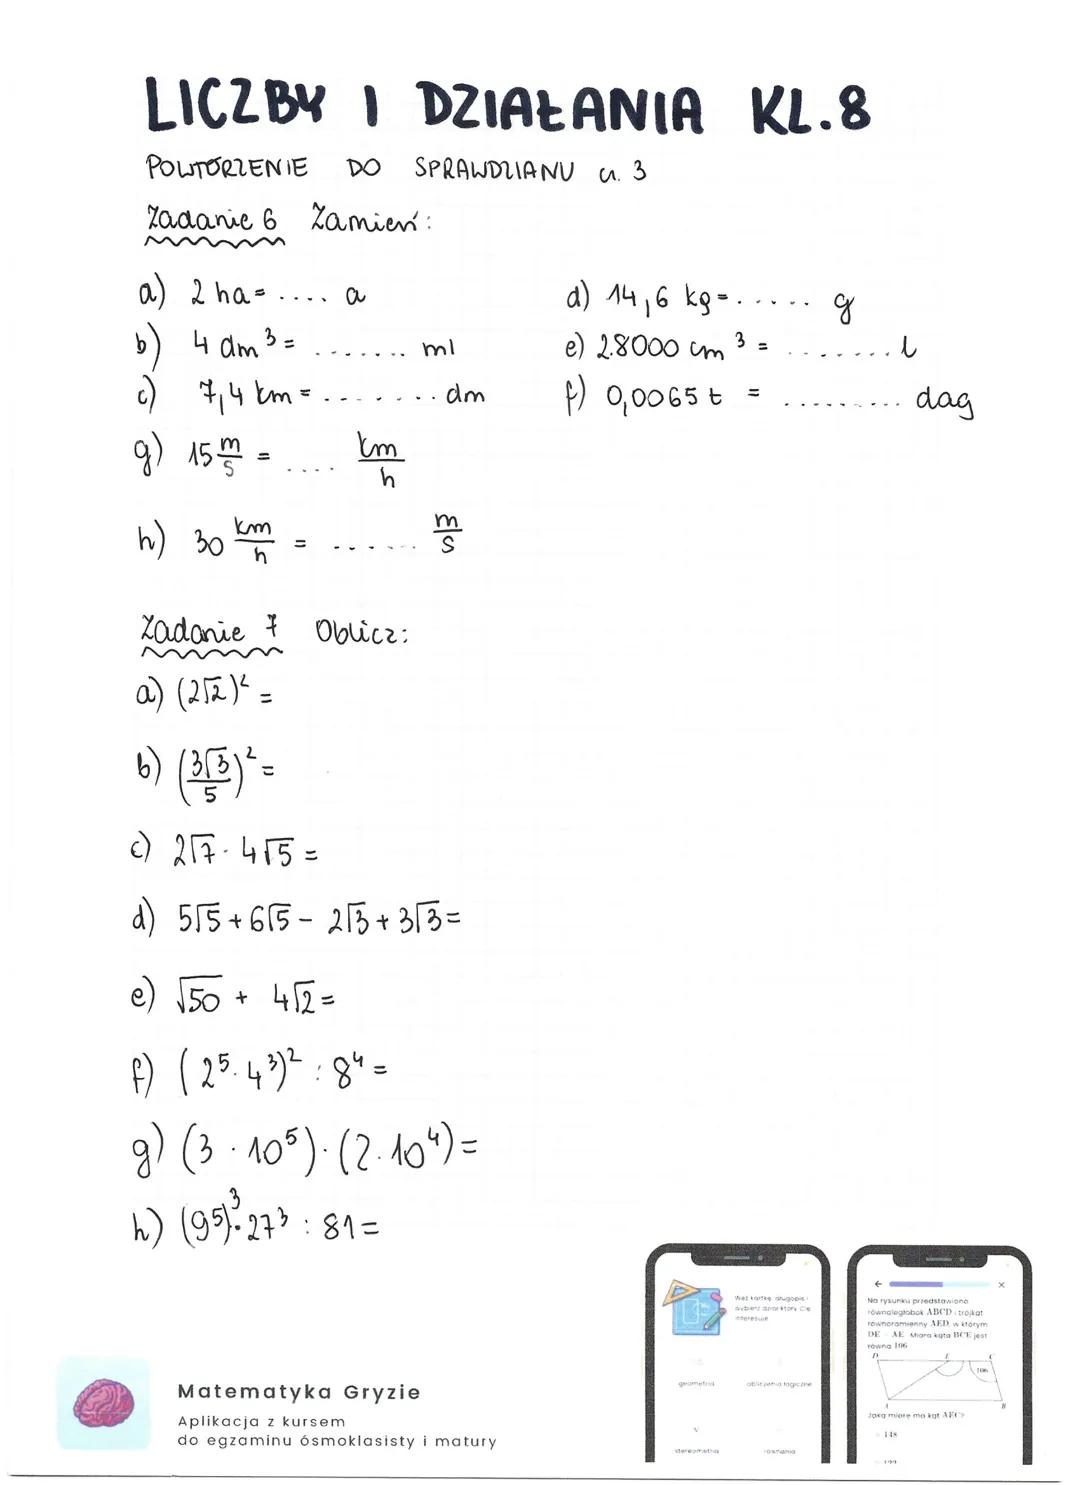 LICZBY I DZIAŁANIA KL.8
POWTÓRZENIE DO SPRAWDZIANU cz. 3
Zadanie 6 Zamień:
a) 2 ha = .... a
b) 4 dm³ = ....... ml
c) 7,4 km = ........ dm
d) 14,6 kg = ...... g
e) 28000 cm³ = ....... l
f) 0,0065 t = ......... dag
g) 15 m/s = .... km/h
h) 30 km/h = ...... m/s
Zadanie 7 Oblicz:
a) (2√2)² =
b) (3√3/5)² =
c) 2√7 · 4√5 =
d) 5√5 + 6√5 - 2√3 + 3√3 =
e) √50 + 4√2 =
f) (2⁵·4³)² : 8⁴ =
g) (3 · 10⁵) · (2·10⁴) =
h) (9⁵)³·27³ : 81 =
Matematyka Gryzie
Aplikacja z kursem
do egzaminu ósmoklasisty i matury
Weź kartkę, długopis i
wybierz dział który Cię
interesuje
geometria
obliczenia logiczne
stereometria
równania
Na rysunku przedstawiono
równoległobok ABCD i trójkąt
równoramienny AED, w którym
DE AE Miara kąta BCE jest
równa 106
D E C
106
A B
Jaką miarę ma kąt AEC?
148